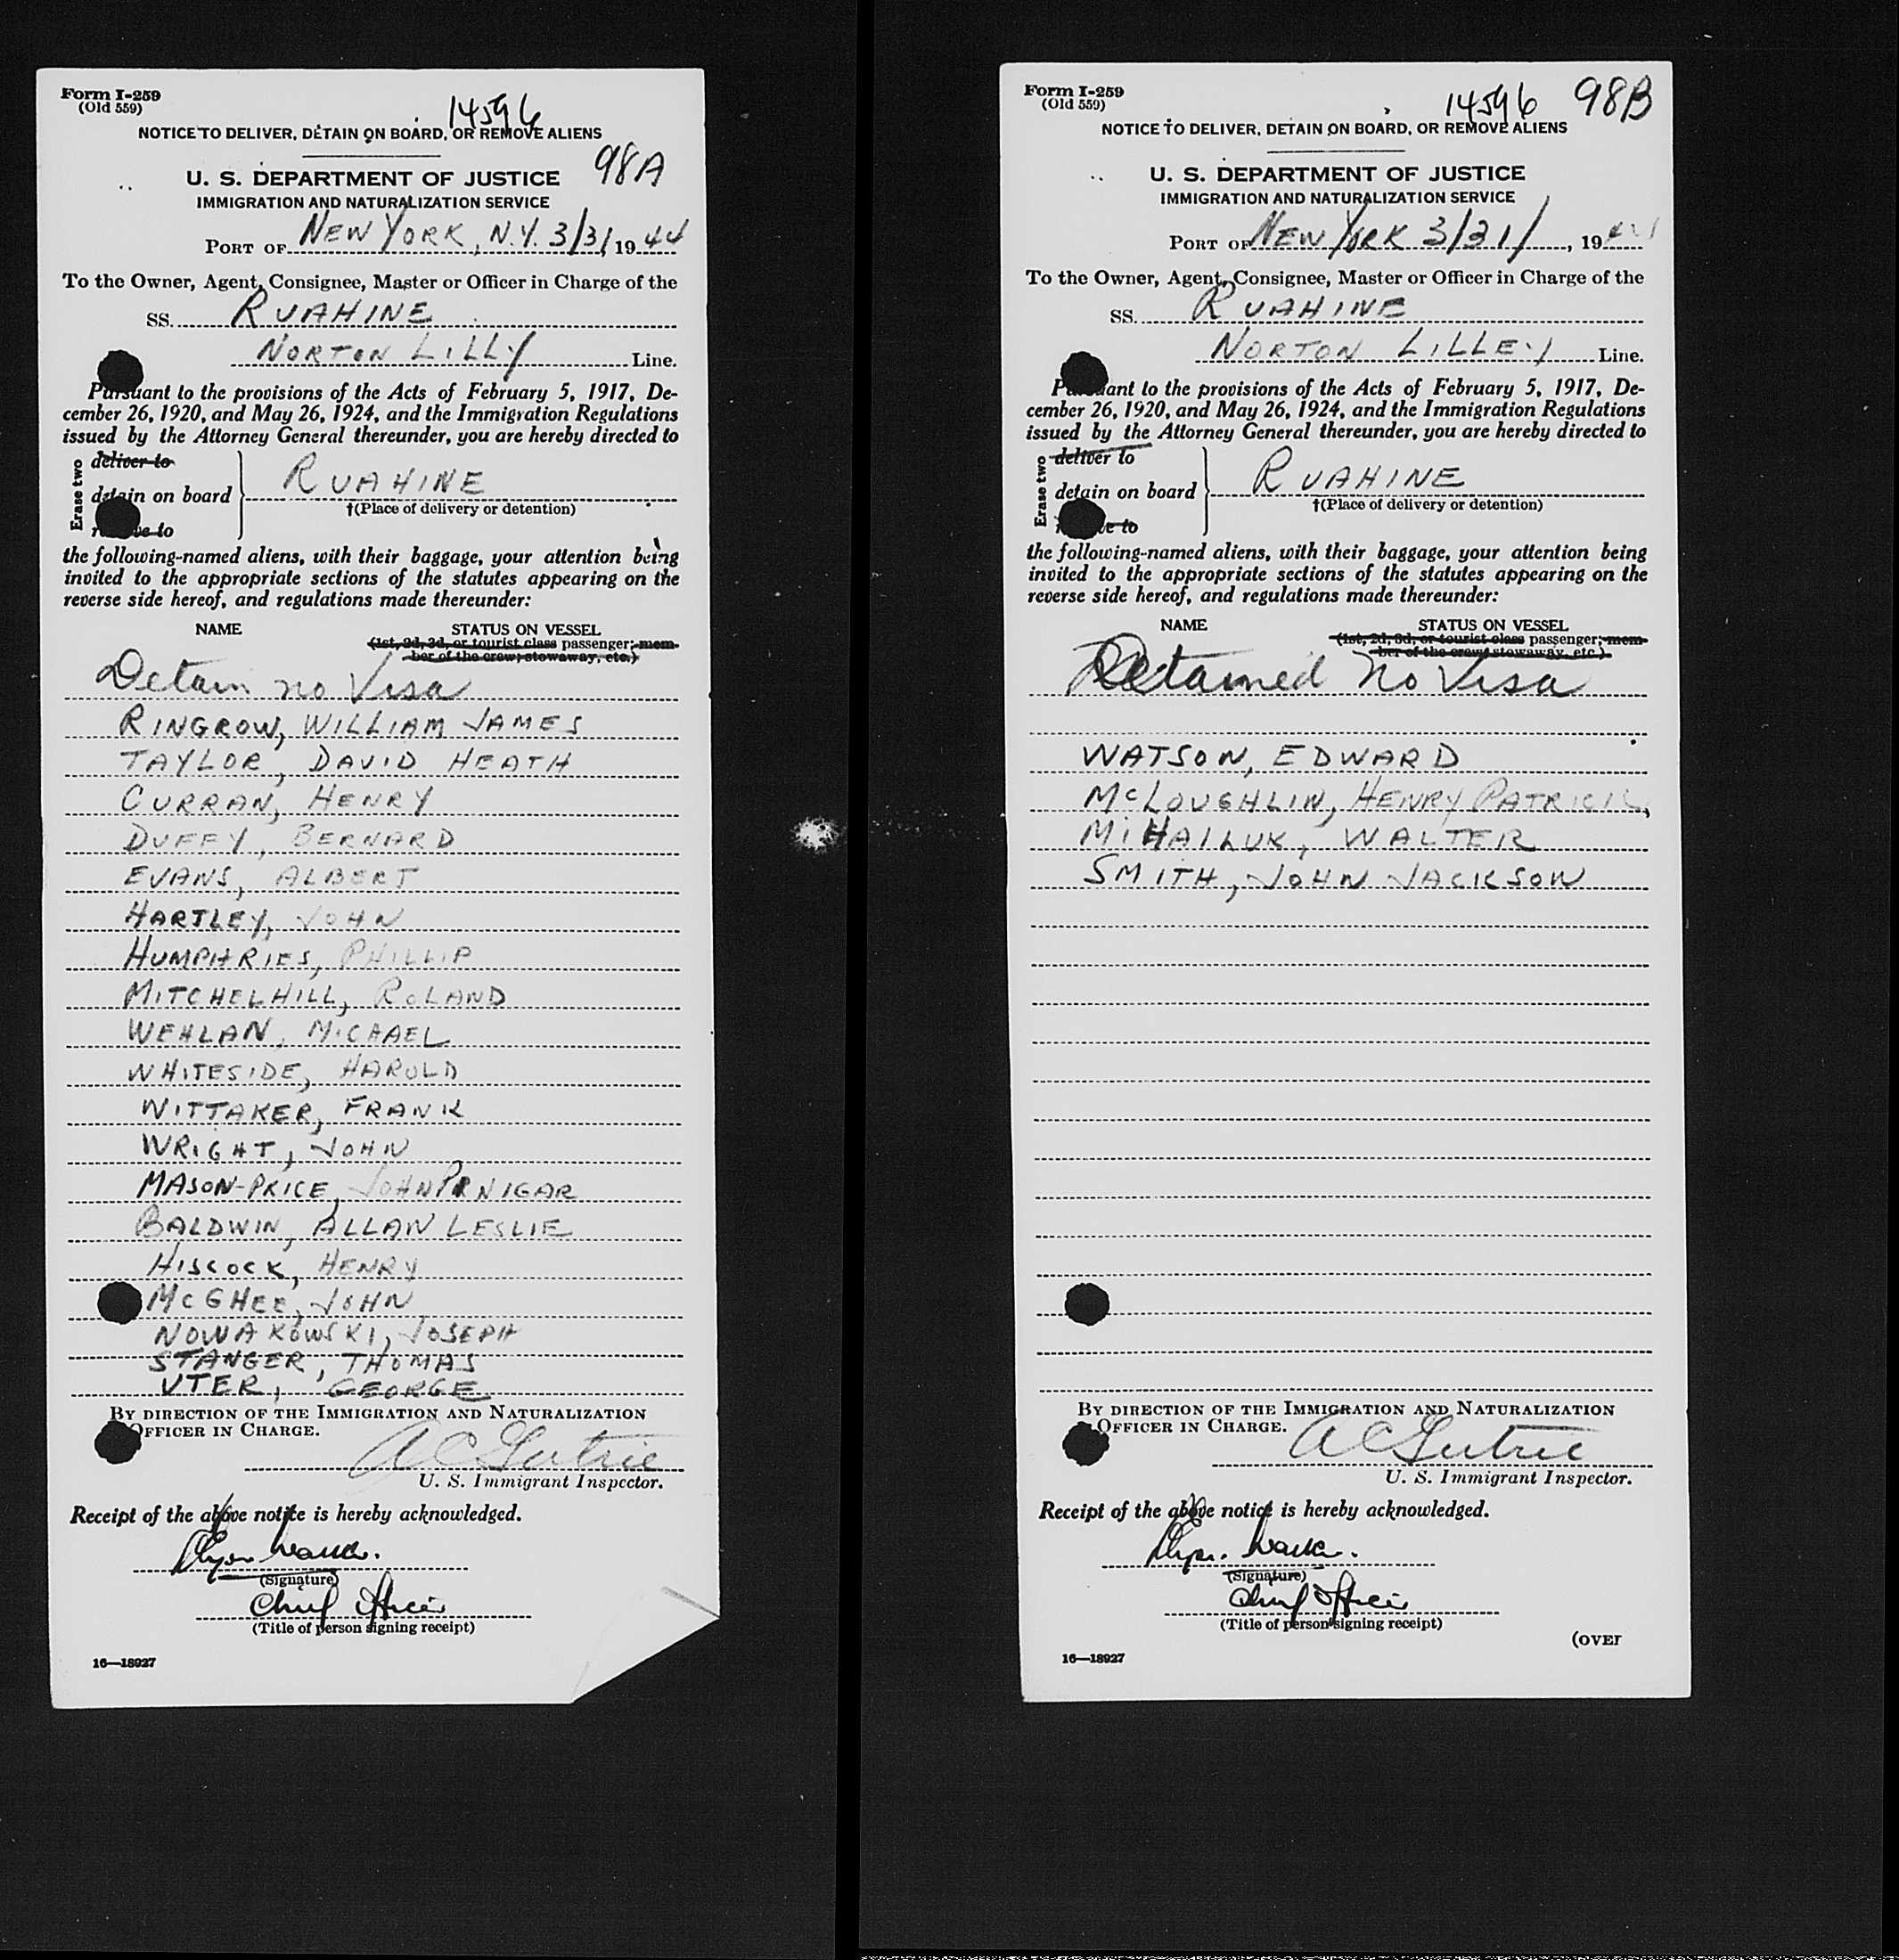 Form I-259
(Old 559)
14596
NOTICE TO DELIVER, DETAIN ON BOARD, OR REMOVE ALIENS
98A
U. S. DEPARTMENT OF JUSTICE
IMMIGRATION AND NATURALIZATION SERVICE
PORT OF NEW YORK, N.Y. 3/31 1944
To the Owner, Agent, Consignee, Master or Officer in Charge of the
SS. RUAHINE
NORTON LILLY Line.
Pursuant to the provisions of the Acts of February 5, 1917, De-
cember 26, 1920, and May 26, 1924, and the Immigration Regulations
issued by the Attorney General thereunder, you are hereby directed to
Erase two
deliver to
detain on board RUAHINE
†(Place of delivery or detention)
remove to
the following-named aliens, with their baggage, your attention being
invited to the appropriate sections of the statutes appearing on the
reverse side hereof, and regulations made thereunder:
NAME STATUS ON VESSEL
(1st, 2d, 3d, or tourist class passenger; mem-
ber of the crew; stowaway, etc.)
Detain no Visa
RINGROW, WILLIAM JAMES
TAYLOR, DAVID HEATH
CURRAN, HENRY
DUFFY, BERNARD
EVANS, ALBERT
HARTLEY, JOHN
HUMPHRIES, PHILLIP
MITCHELHILL, ROLAND
WEHLAN, MICHAEL
WHITESIDE, HAROLD
WITTAKER, FRANK
WRIGHT, JOHN
MASON-PRICE, JOHN
BALDWIN, ALLAN LESLIE
HISCOCK, HENRY
MCGHEE, JOHN
NOWAKOWSKI, JOSEPH
STANGER, THOMAS
UTER, GEORGE
BY DIRECTION OF THE IMMIGRATION AND NATURALIZATION
OFFICER IN CHARGE.
U. S. Immigrant Inspector.
Receipt of the above notice is hereby acknowledged.
(Signature)
Chief Officer
(Title of person signing receipt)
16—18927
Form I-259
(Old 559)
14596 98B
NOTICE TO DELIVER, DETAIN ON BOARD, OR REMOVE ALIENS
U. S. DEPARTMENT OF JUSTICE
IMMIGRATION AND NATURALIZATION SERVICE
PORT OF NEW YORK 3/31/, 1944
To the Owner, Agent, Consignee, Master or Officer in Charge of the
SS. RUAHINE
NORTON LILLEY Line.
Pursuant to the provisions of the Acts of February 5, 1917, De-
cember 26, 1920, and May 26, 1924, and the Immigration Regulations
issued by the Attorney General thereunder, you are hereby directed to
Erase two
deliver to
detain on board RUAHINE
†(Place of delivery or detention)
remove to
the following-named aliens, with their baggage, your attention being
invited to the appropriate sections of the statutes appearing on the
reverse side hereof, and regulations made thereunder:
NAME STATUS ON VESSEL
(1st, 2d, 3d, or tourist class passenger; mem-
ber of the crew; stowaway, etc.)
Detained no Visa
WATSON, EDWARD
MCLOUGHLIN, HENRY PATRICK,
MIHAILUK, WALTER
SMITH, JOHN JACKSON
BY DIRECTION OF THE IMMIGRATION AND NATURALIZATION
OFFICER IN CHARGE.
U. S. Immigrant Inspector.
Receipt of the above notice is hereby acknowledged.
(Signature)
Chief Officer
(Title of person signing receipt)
(OVER
16—18927